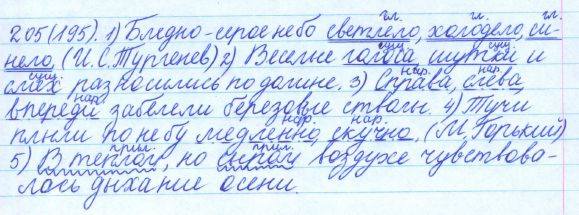 205(195). 1) Бледно-серое небо светлело, холодело, си-
нело. (И.С.Тургенев) 2) Веселые голоса, шутки и
смех разносились по долине. 3) Справа, слева,
впереди забелели березовые стволы. 4) Тучи
плыли по небу медленно, скучно. (М. Горький)
5) В теплом, но сыром воздухе чувствова-
лось дыхание осени.
гл. гл. гл.
сущ. сущ.
сущ. нар. нар.
нар.
нар. нар.
прил. прил.